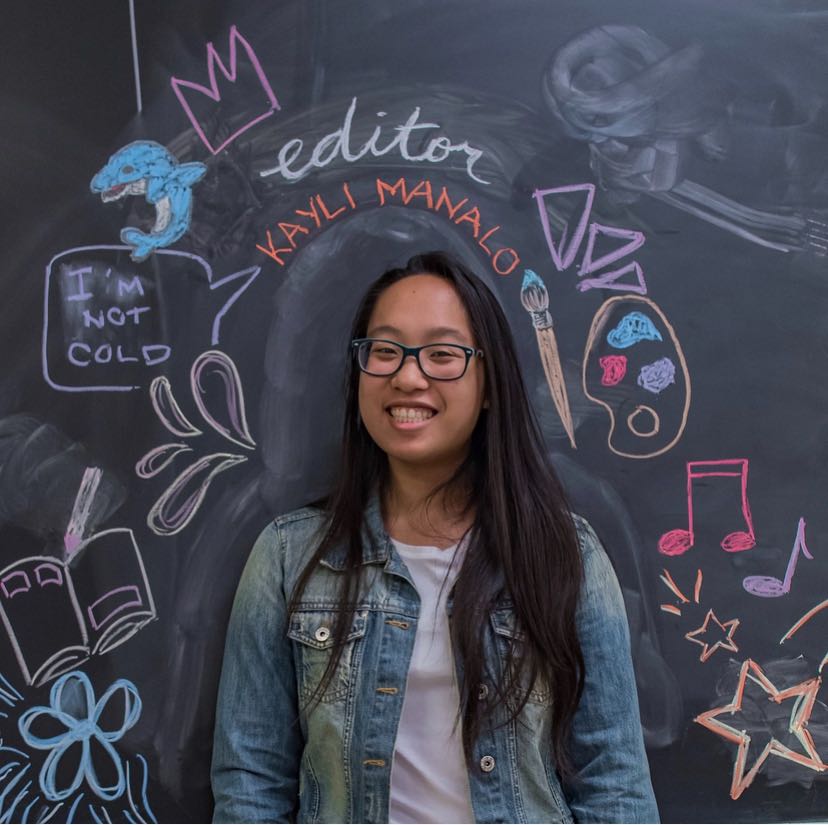 editor
KAYLI MANALO
I'M
NOT
COLD